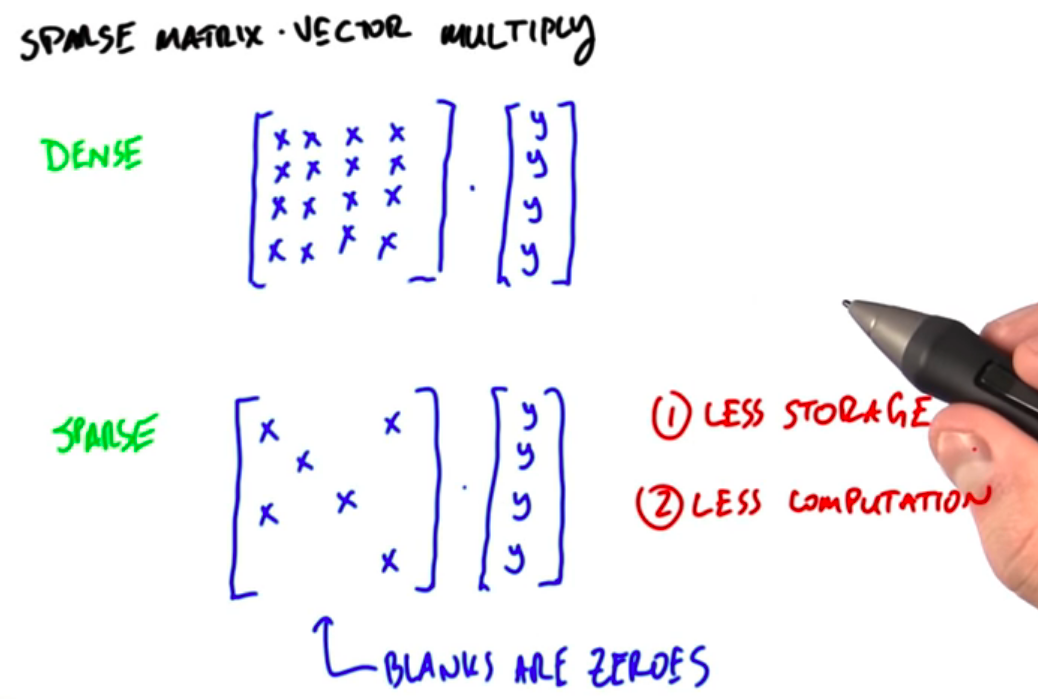 SPARSE MATRIX · VECTOR MULTIPLY
DENSE
x x x x
x x x x
x x x x
x x x x
·
y
y
y
y
SPARSE
x x
x
x x
x
·
y
y
y
y
① LESS STORAGE
② LESS COMPUTATION
BLANKS ARE ZEROES